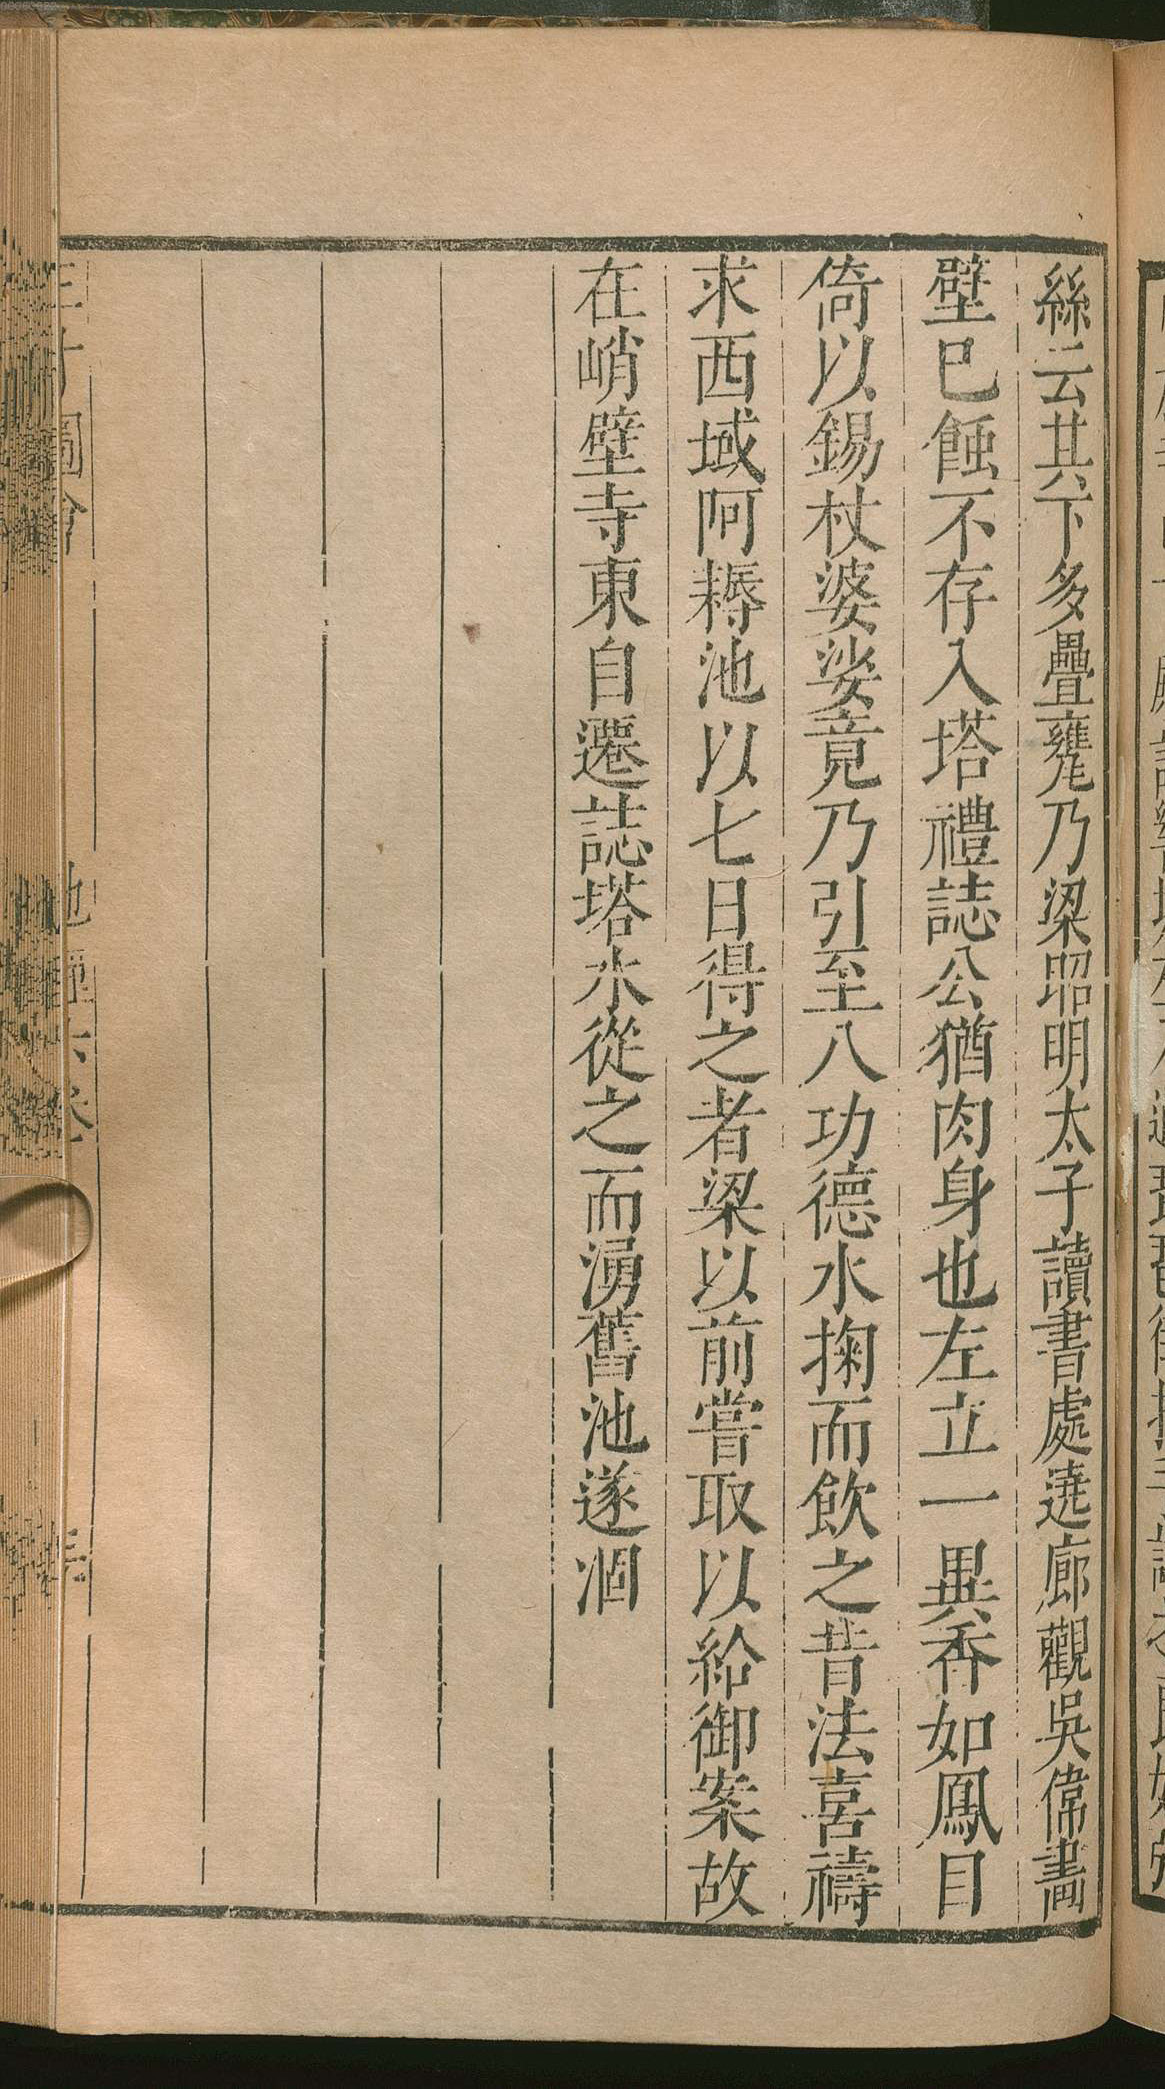 絲云其下多疊甕乃梁昭明太子讀書處遶廊觀吳偉畫
壁巳蝕不存入塔禮誌公猶肉身也左立一異香如鳳目
倚以錫杖婆娑竟乃引至八功德水掬而飲之昔法喜禱
求西域阿耨池以七日得之者梁以前嘗取以給御案故
在峭壁寺東自遷誌塔水從之而湧舊池遂涸
三才圖會 地理六卷